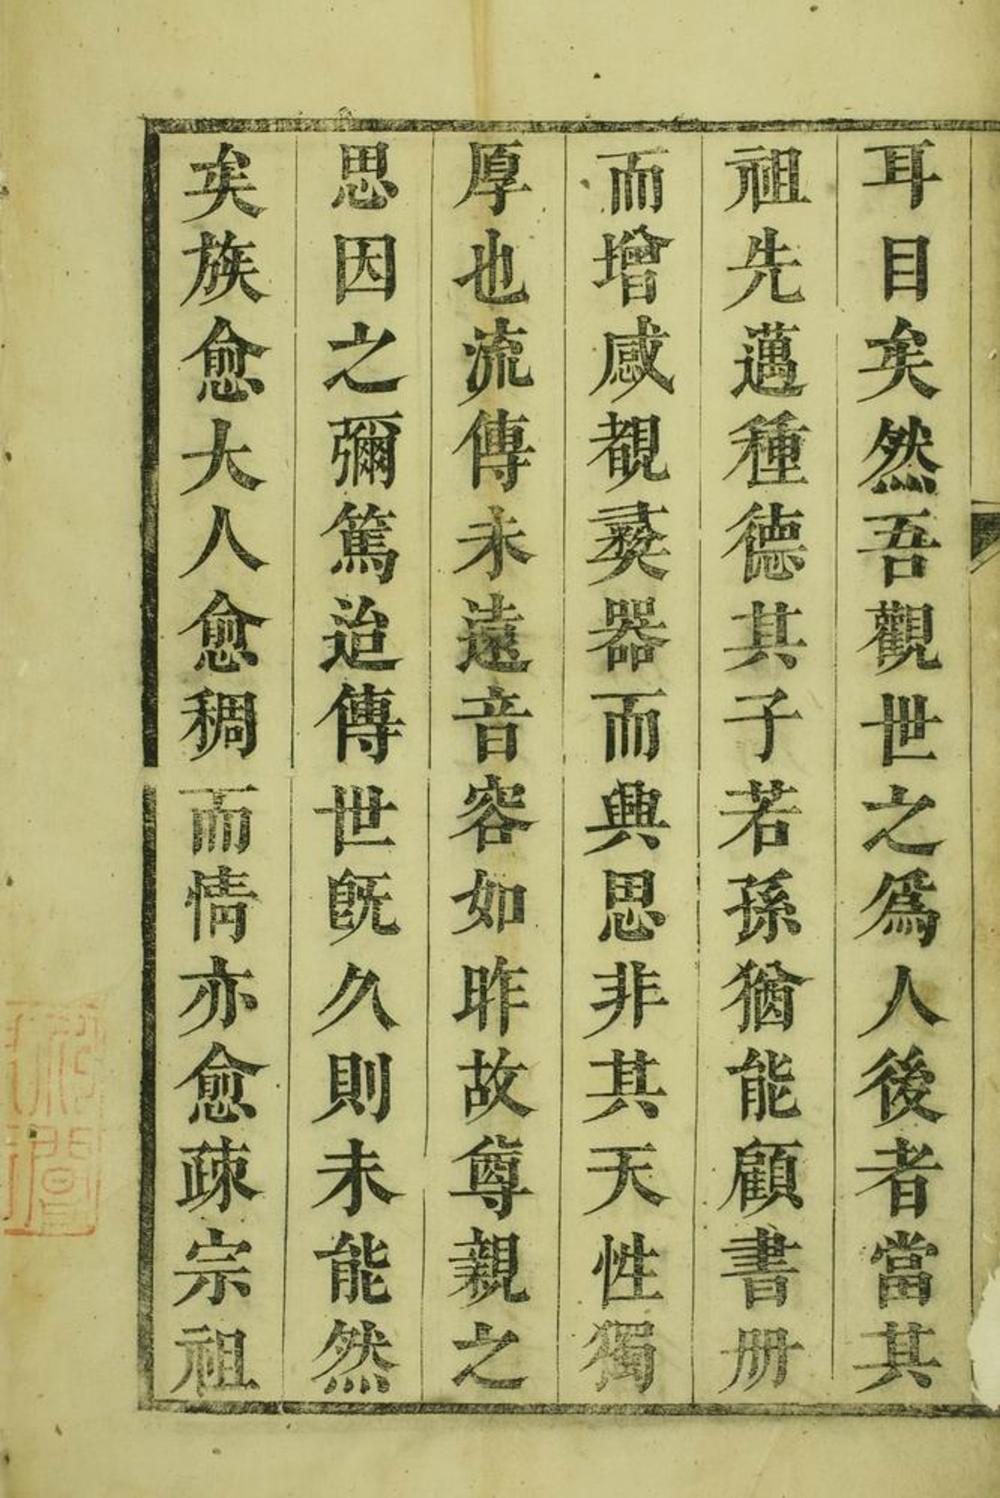 耳目矣然吾觀世之爲人後者當其
祖先邁種德其子若孫猶能顧書册
而增感覩彛器而興思非其天性獨
厚也流傳未遠音容如昨故尊親之
思因之彌篤迨傳世旣久則未能然
矣族愈大人愈稠而情亦愈疎宗祖